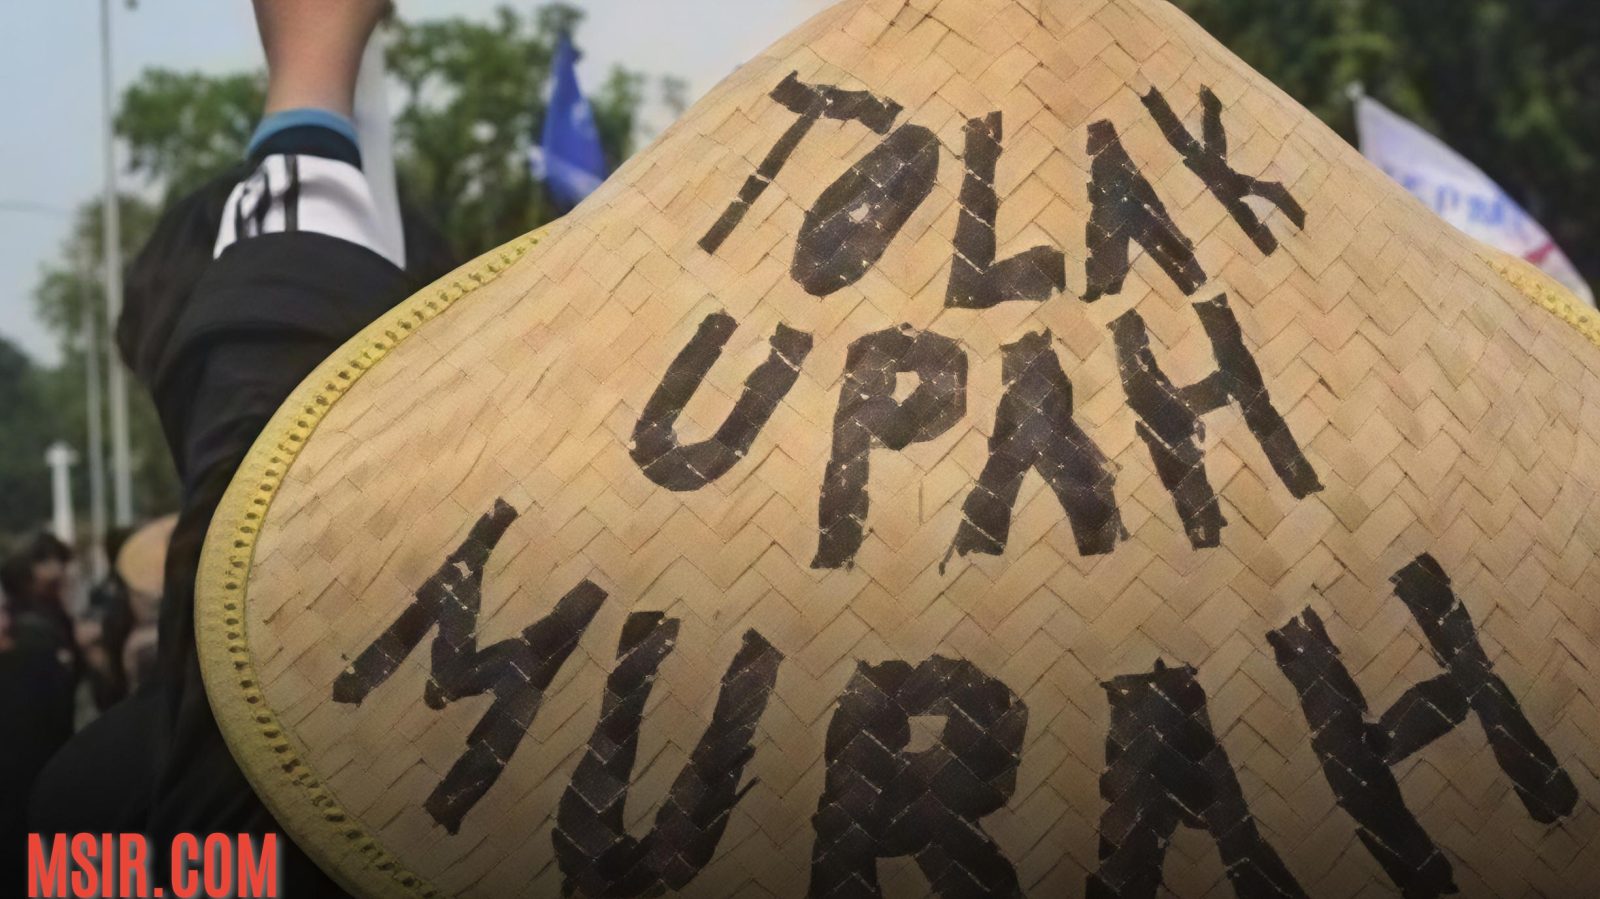 TOLAK
UPAH
MURAH
MSIR.COM